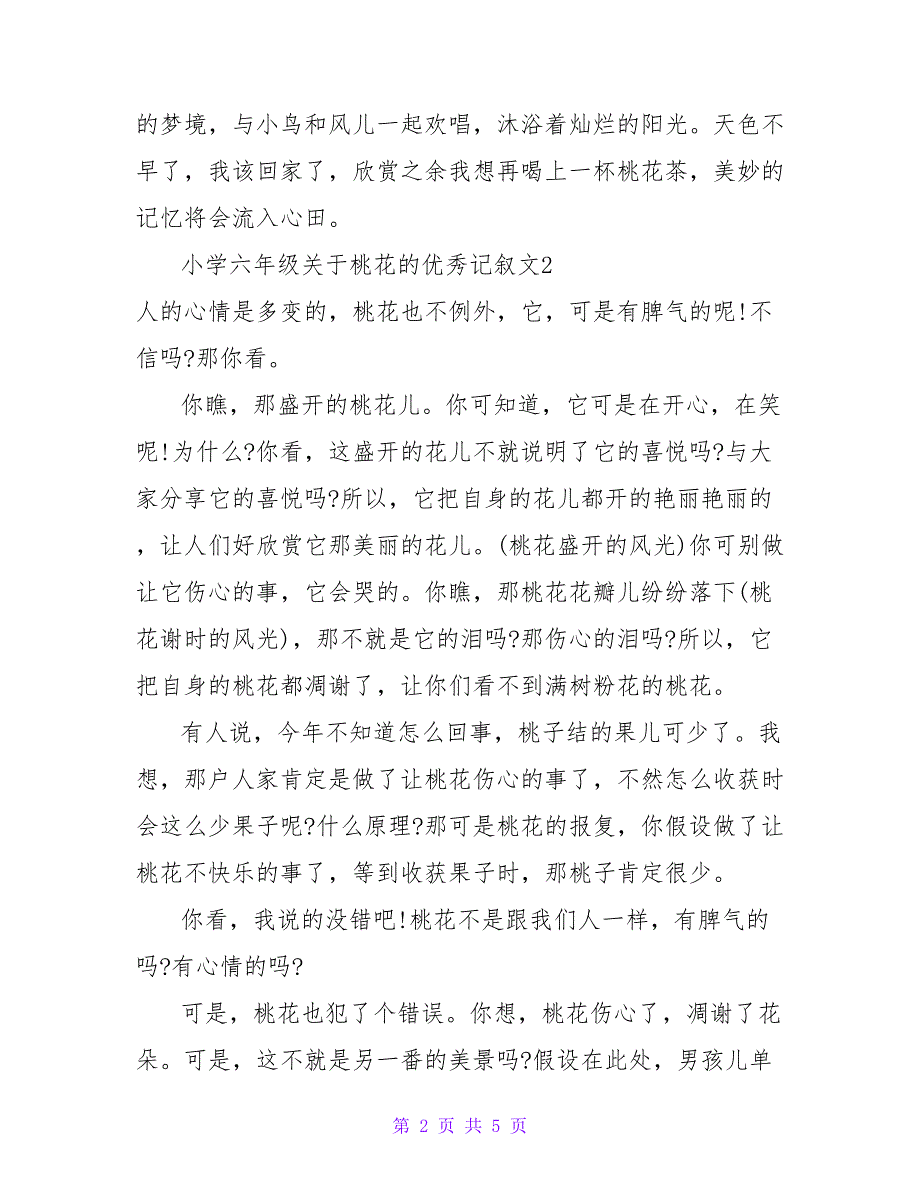 的梦境，与小鸟和风儿一起欢唱，沐浴着灿烂的阳光。天色不
早了，我该回家了，欣赏之余我想再喝上一杯桃花茶，美妙的
记忆将会流入心田。
小学六年级关于桃花的优秀记叙文2
人的心情是多变的，桃花也不例外，它，可是有脾气的呢!不
信吗?那你看。
你瞧，那盛开的桃花儿。你可知道，它可是在开心，在笑
呢!为什么?你看，这盛开的花儿不就说明了它的喜悦吗?与大
家分享它的喜悦吗?所以，它把自身的花儿都开的艳丽艳丽的
，让人们好欣赏它那美丽的花儿。(桃花盛开的风光)你可别做
让它伤心的事，它会哭的。你瞧，那桃花花瓣儿纷纷落下(桃
花谢时的风光)，那不就是它的泪吗?那伤心的泪吗?所以，它
把自身的桃花都凋谢了，让你们看不到满树粉花的桃花。
有人说，今年不知道怎么回事，桃子结的果儿可少了。我
想，那户人家肯定是做了让桃花伤心的事了，不然怎么收获时
会这么少果子呢?什么原理?那可是桃花的报复，你假设做了让
桃花不快乐的事了，等到收获果子时，那桃子肯定很少。
你看，我说的没错吧!桃花不是跟我们人一样，有脾气的
吗?有心情的吗?
可是，桃花也犯了个错误。你想，桃花伤心了，凋谢了花
朵。可是，这不就是另一番的美景吗?假设在此处，男孩儿单
第 2 页 共 5 页